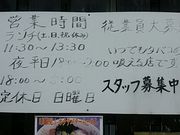 営業時間
ランチ(土日、祝休み)
11:30〜13:30
夜 平日
18:00〜
定休日 日曜日
従業員大募
いつでもタバコが
吸える店です!
スタッフ募集中